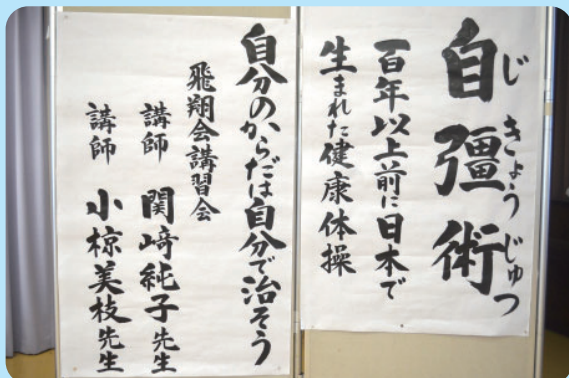 自彊術
じきょうじゅつ
百年以上前に日本で
生まれた健康体操
自分のからだは自分で治そう
飛翔会講習会
講師 関﨑純子先生
講師 小椋美枝先生